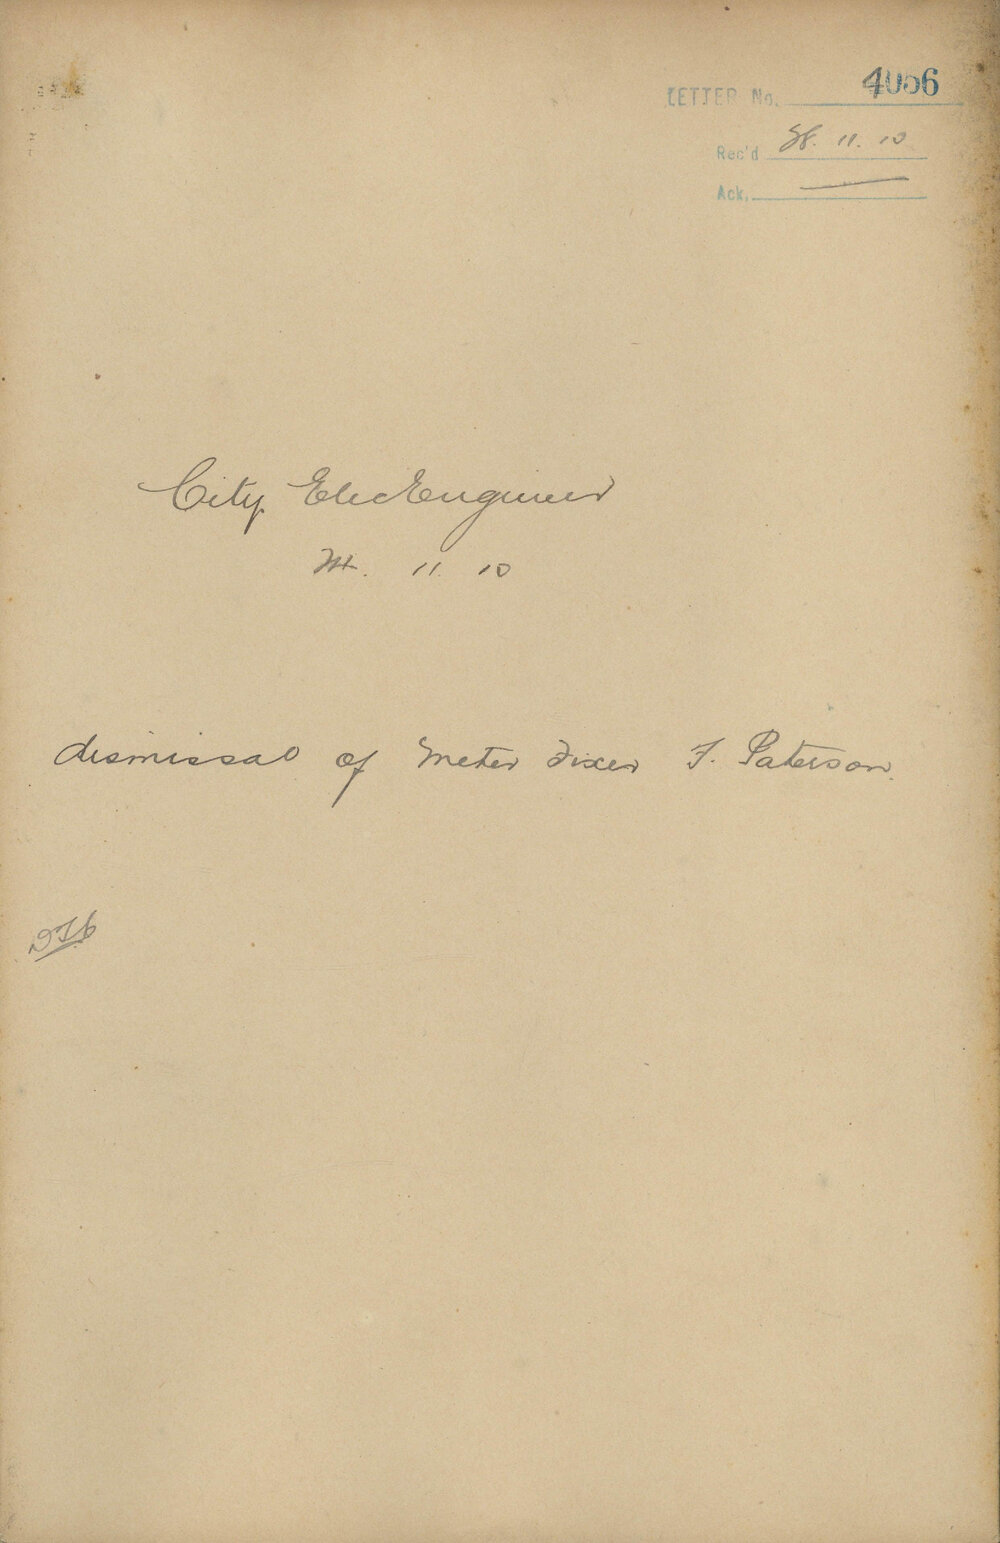 LETTER No. 4056
Rec'd 28. 11. 10
Ack.
City Elec Engineer
11. 10
dismissal of Meter Fixer F. Paterson.